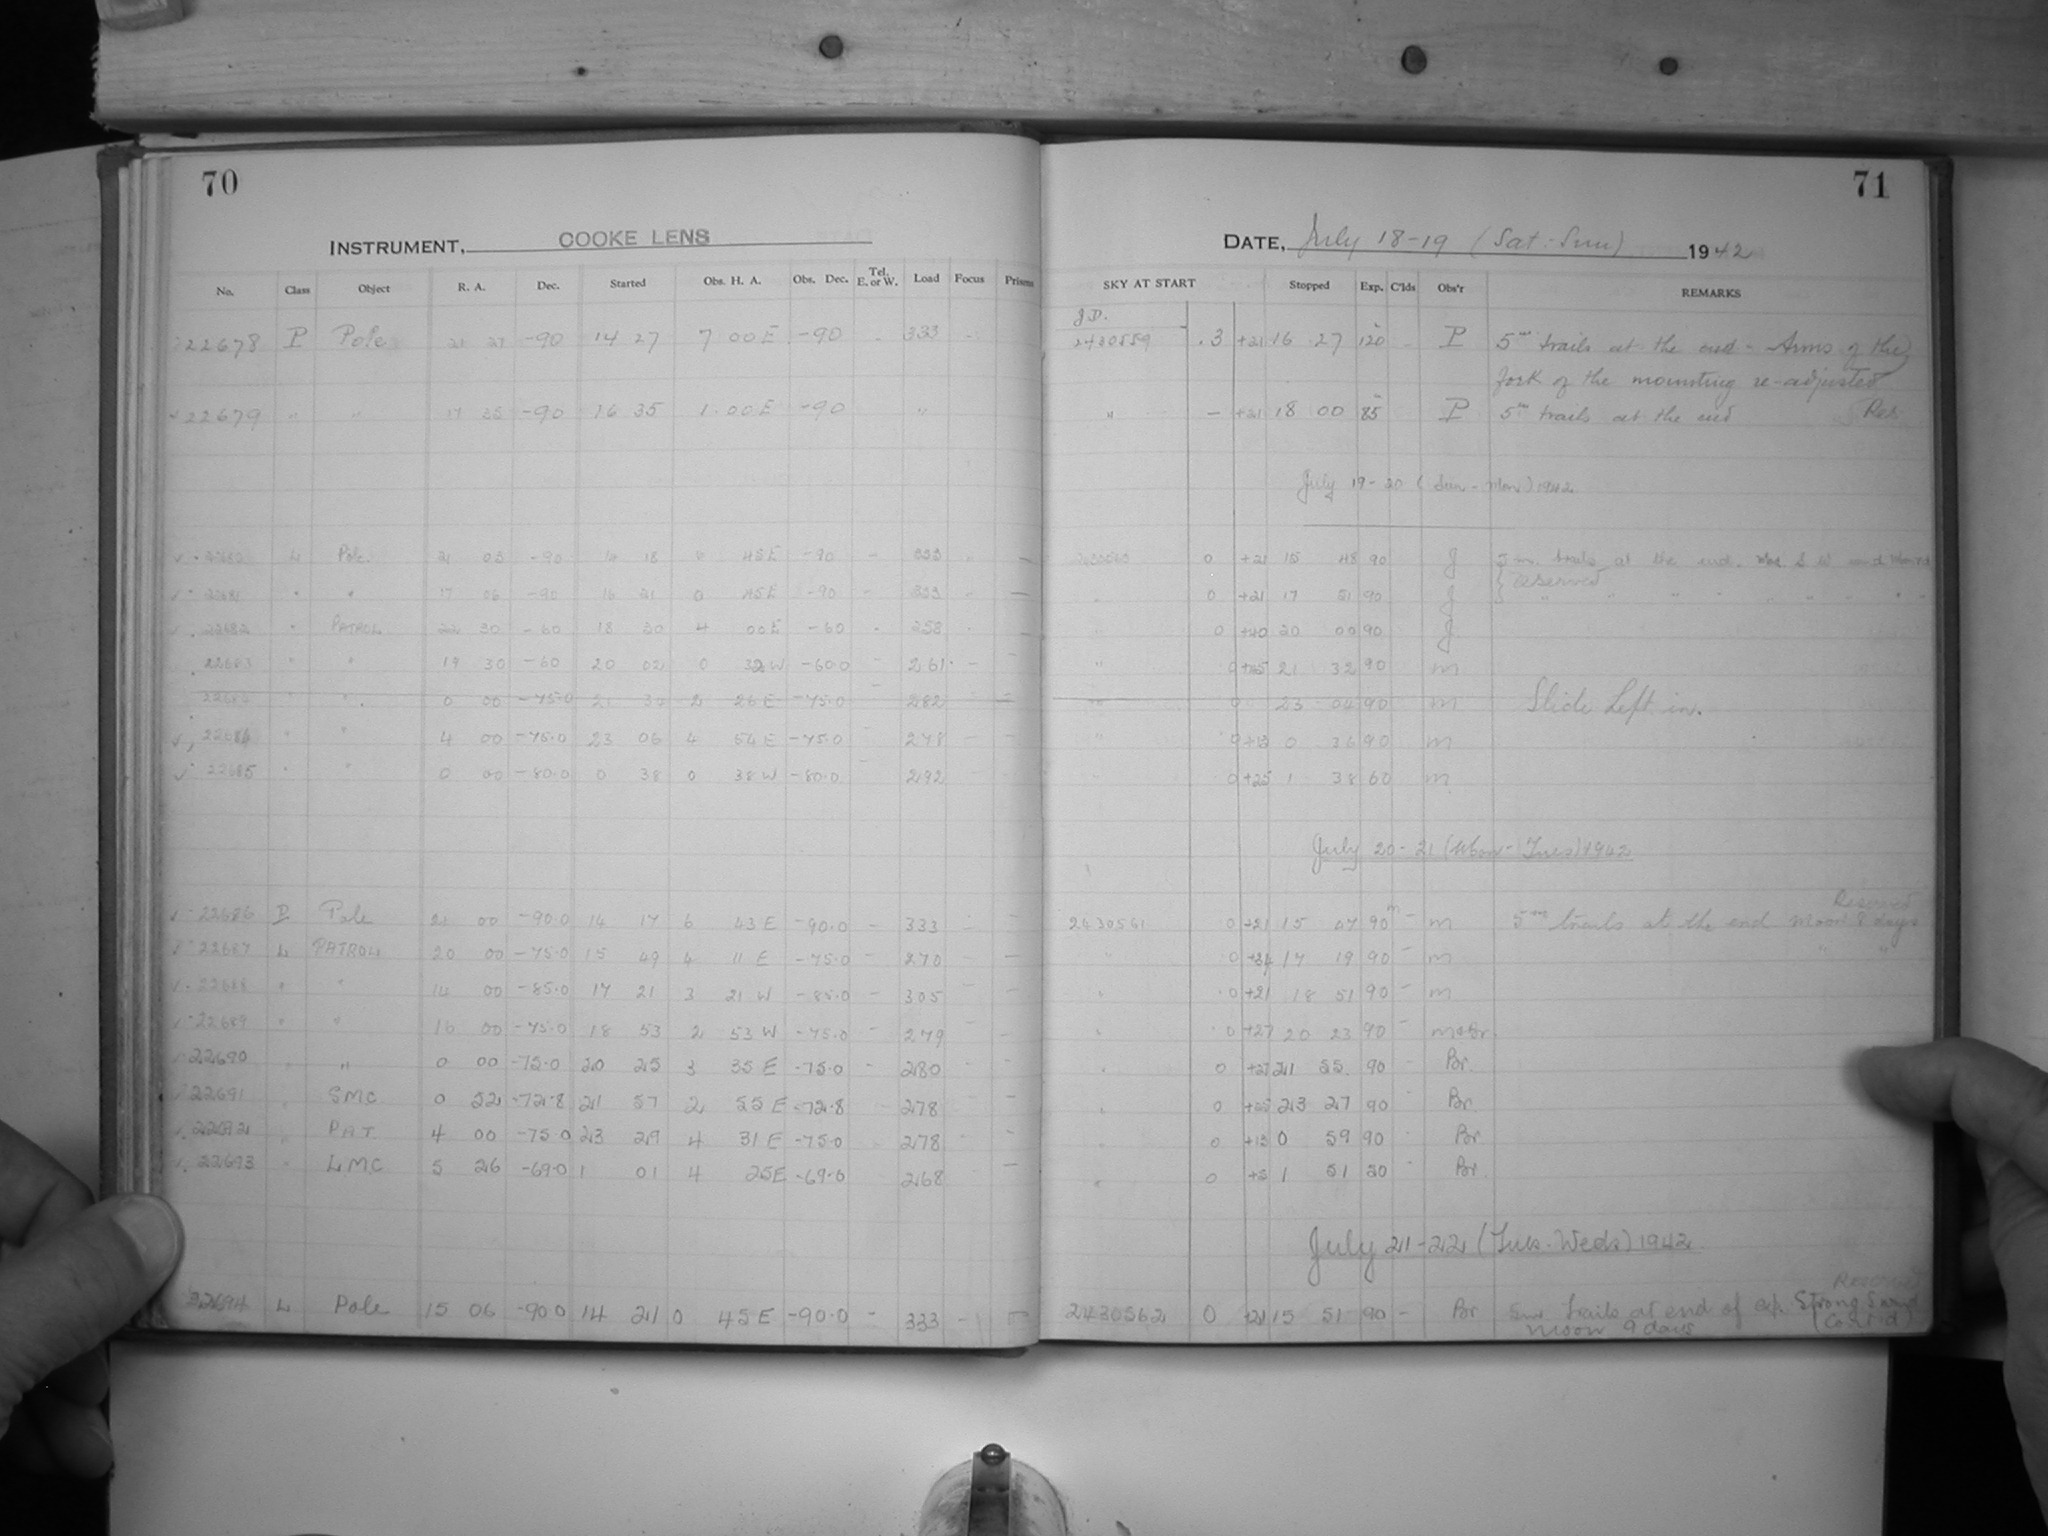 70
INSTRUMENT, COOKE LENS
No. Class Object R. A. Dec. Started Obs. H. A. Obs. Dec. Tel. E. or W. Load Focus Prisms
22678 P Pole 21 27 -90 14 27 7 00 E -90 - 333 -
22679 " " 17 35 -90 16 35 1.00 E -90 "
L Pole. 21 03 -90 14 18 6 45 E -90 - 333 " -
22681 " " 17 06 -90 16 21 0 45 E -90 - 333 " -
22682 " PATROL 22 30 -60 18 30 4 00 E -60 - 258 -
22683 " " 19 30 -60 20 02 0 32 W -60.0 - 261 - -
" " 0 00 -75.0 21 34 2 26 E -75.0 - 282 - -
22684 " " 4 00 -75.0 23 06 4 54 E -75.0 - 278 - -
22685 " " 0 00 -80.0 0 38 0 38 W -80.0 - 292 - -
22686 P Pole 21 00 -90.0 14 17 6 43 E -90.0 - 333 - -
22687 L PATROL 20 00 -75.0 15 49 4 11 E -75.0 - 270 - -
22688 " " 14 00 -85.0 17 21 3 21 W -85.0 - 305 - -
22689 " " 16 00 -75.0 18 53 2 53 W -75.0 - 279 - -
22690 " " 0 00 -75.0 20 25 3 35 E -75.0 - 280 - -
22691 " SMC 0 52 -72.8 21 57 2 55 E -72.8 - 278 - -
22692 " PAT. 4 00 -75.0 23 29 4 31 E -75.0 - 278 - -
22693 " LMC 5 26 -69.0 1 01 4 25 E -69.0 268 -
22694 L Pole 15 06 -90.0 14 21 0 45 E -90.0 - 333 - -
71
DATE, July 18-19 (Sat.-Sun) 1942
SKY AT START Stopped Exp. C'lds Obs'r REMARKS
J.D.
2430559 .3 +21 16 27 120 - P 5m trails at the end - Arms of the
fork of the mounting re-adjusted
" - +21 18 00 85 P 5m trails at the end Res
July 19-20 (Sun-Mon) 1942
0 +21 15 48 90 J 5 m. trails at the end. S W and Moon
Reserved
" 0 +21 17 51 90 J " " " " " " " "
" 0 +40 20 00 90 J
" 0 21 32 90 m
" 0 23 04 90 m Slide Left in.
" 0 +13 0 36 90 m
" 0 +25 1 38 60 m
July 20-21 (Mon-Tues) 1942
Reserved
2430561 0 +21 15 47 90m - m 5m trails at the end Moon 8 days
" 0 +34 17 19 90 - m " "
" 0 +21 18 51 90 - m
" 0 +27 20 23 90 - m & Br.
" 0 +27 21 55 90 Br.
" 0 23 27 90 - Br.
" 0 +13 0 59 90 - Br
" 0 1 51 50 - Br.
July 21-22 (Tues-Weds) 1942
Reserved
2430562 0 +21 15 51 90 - Br 5m trails at end of exp. Strong S wind
Moon 9 days (Cont'd)